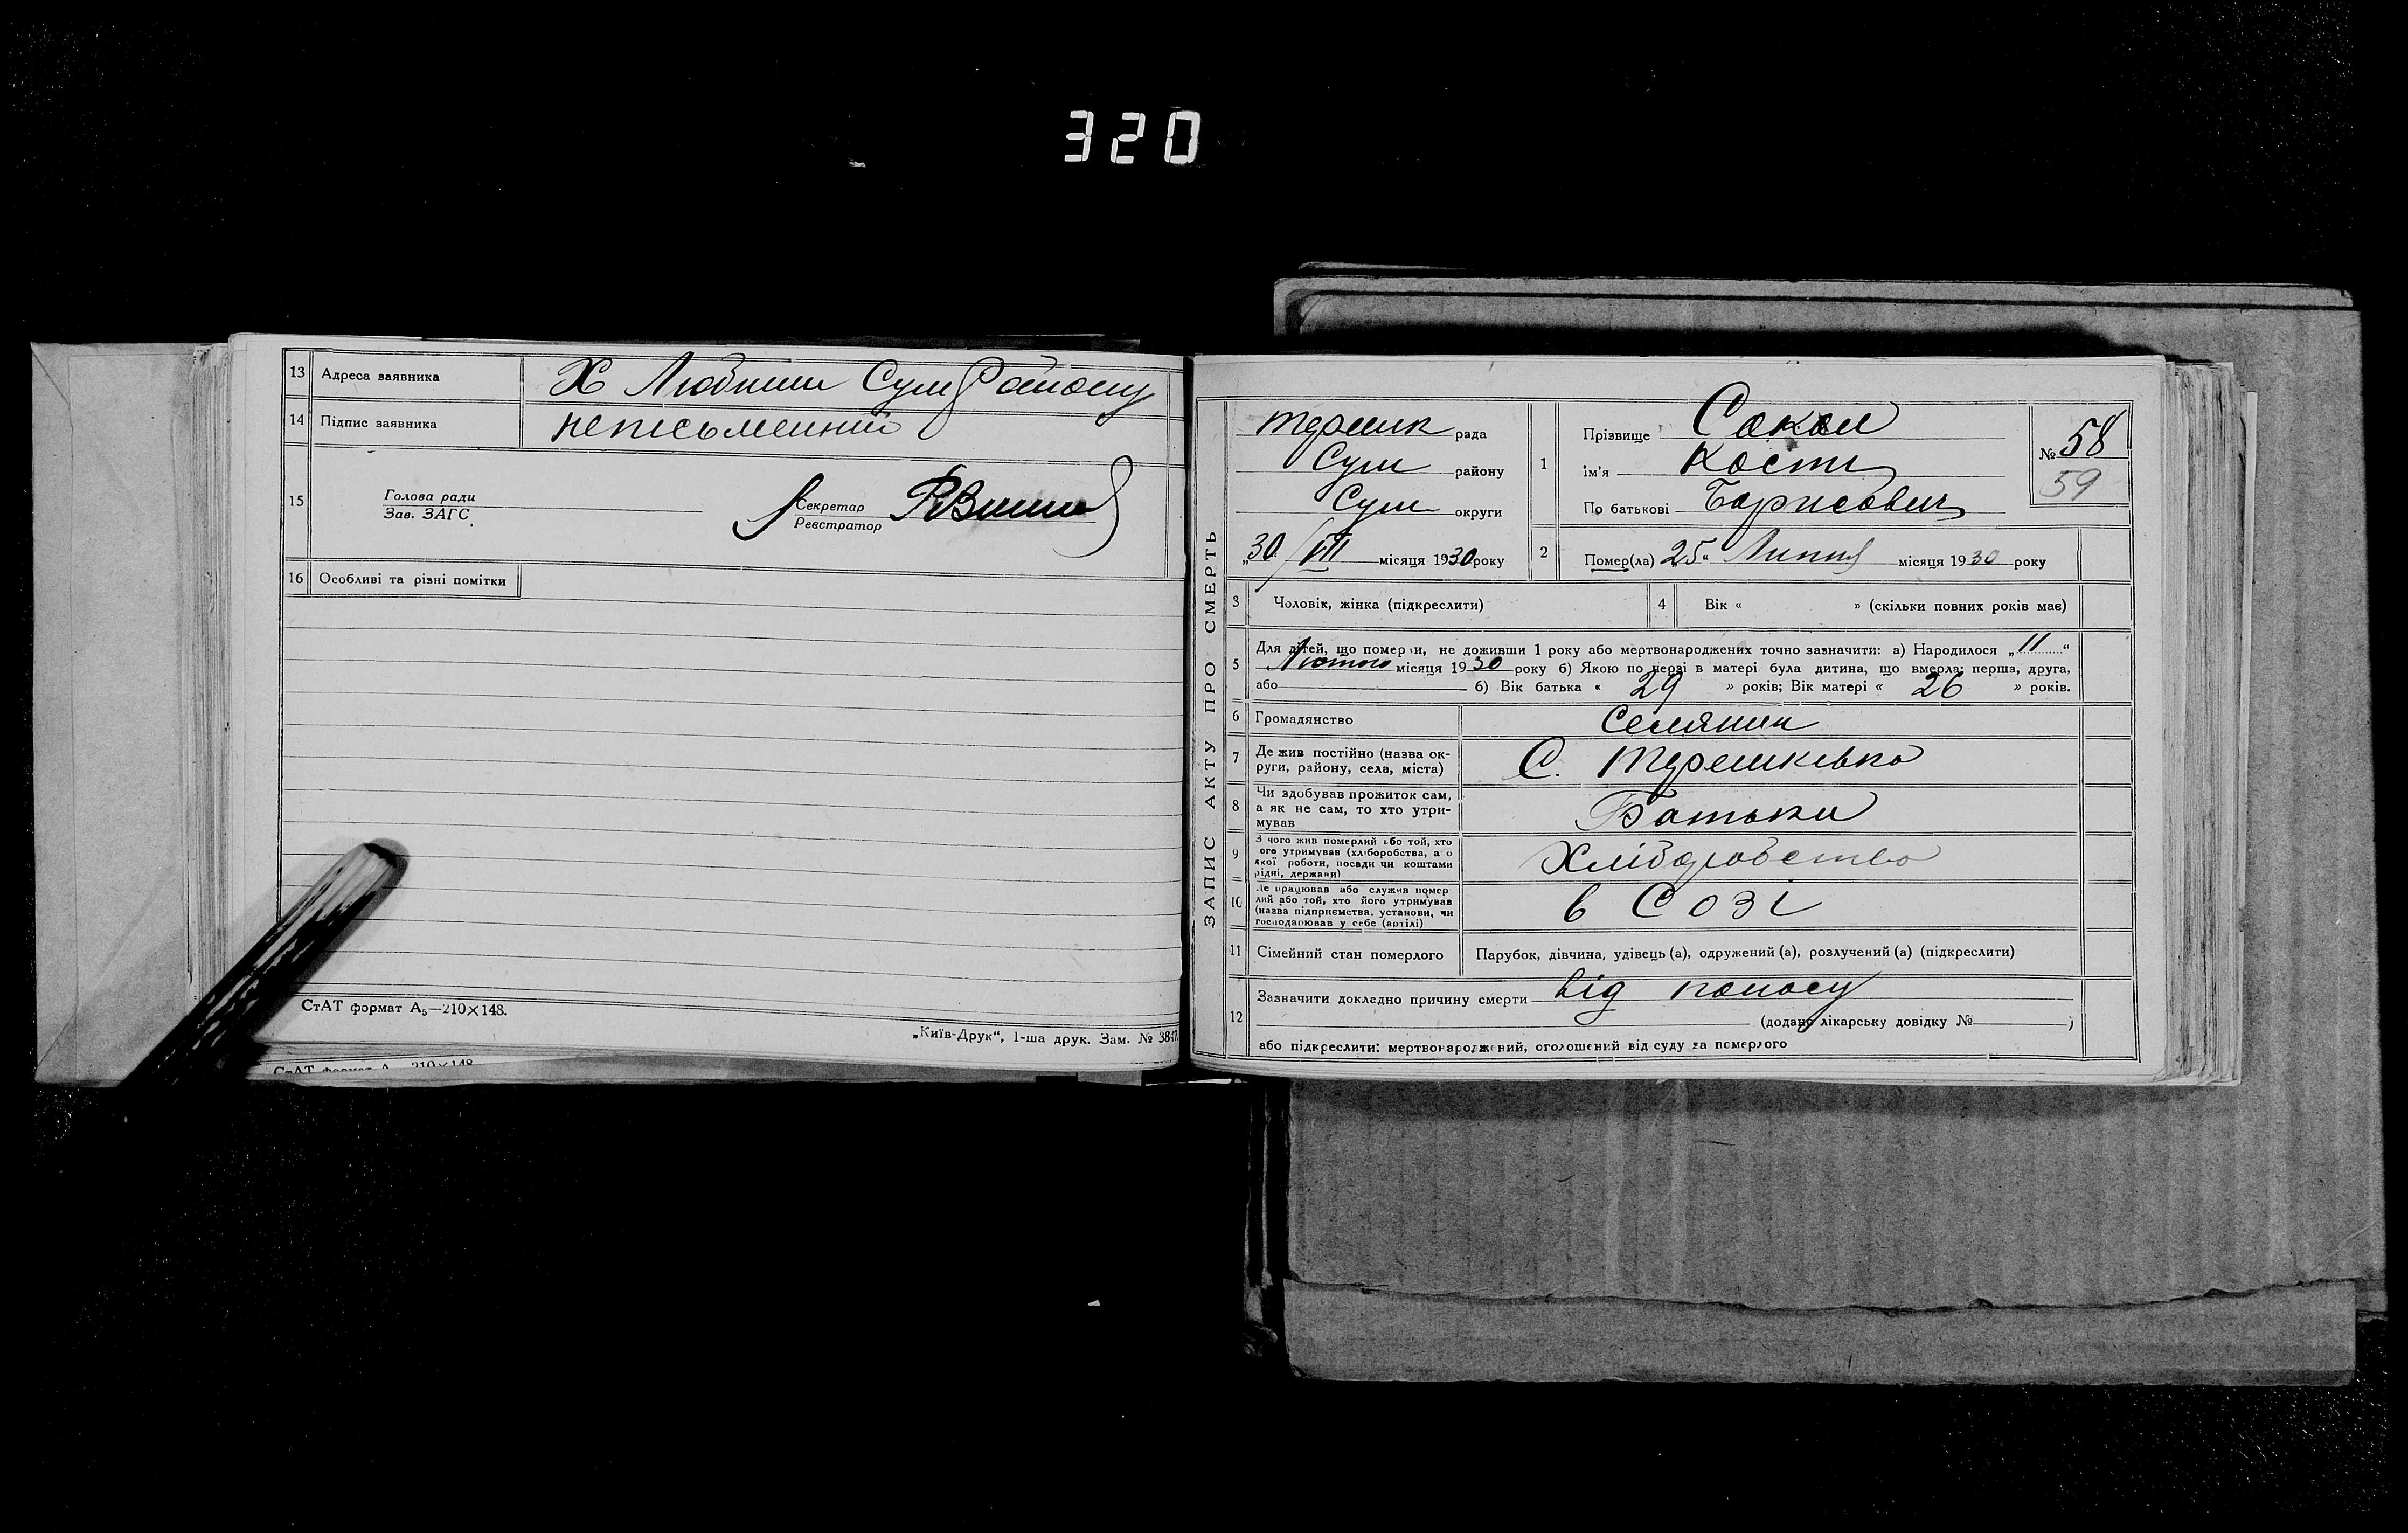 320
13 Адреса заявника Х Любчичи Сум Району
14 Підпис заявника неписьменний
15 Голова ради
Зав. ЗАГС
Секретар
Реєстратор
16 Особливі та різні помітки
СтАТ формат А₅—210×148.
„Київ-Друк“, 1-ша друк. Зам. № 3847.
СтАТ формат А 210×148
ЗАПИС АКТУ ПРО СМЕРТЬ
Терешк рада
Сум району
Сум округи
„30“ / VII місяця 1930 року
1 Прізвище Сокол
ім'я Кость
По батькові Борисович
№ 58
59
2 Помер(ла) 25“ Липня місяця 1930 року
3 Чоловік, жінка (підкреслити)
4 Вік « » (скільки повних років має)
5 Для дітей, що померли, не доживши 1 року або мертвонароджених точно зазначити: а) Народилося „11“
Лютого місяця 1930 року б) Якою по черзі в матері була дитина, що вмерла: перша, друга,
або б) Вік батька « 29 » років; Вік матері « 26 » років.
6 Громадянство Селянин
7 Де жив постійно (назва ок-
руги, району, села, міста) С. Терешківка
8 Чи здобував прожиток сам,
а як не сам, то хто утри-
мував Батьки
9 З чого жив померлий або той, хто
його утримував (хліборобства, а о
якої роботи, посади чи коштами
рідні, держави) Хліборобство
10 Де працював або служив помер
лий або той, хто його утримував
(назва підприємства, установи, чи
господарював у себе (артілі) в Созі
11 Сімейний стан померлого Парубок, дівчина, удівець (а), одружений (а), розлучений (а) (підкреслити)
12 Зазначити докладно причину смерти від поносу
(додано лікарську довідку № )
або підкреслити: мертвонароджений, оголошений від суду за померлого